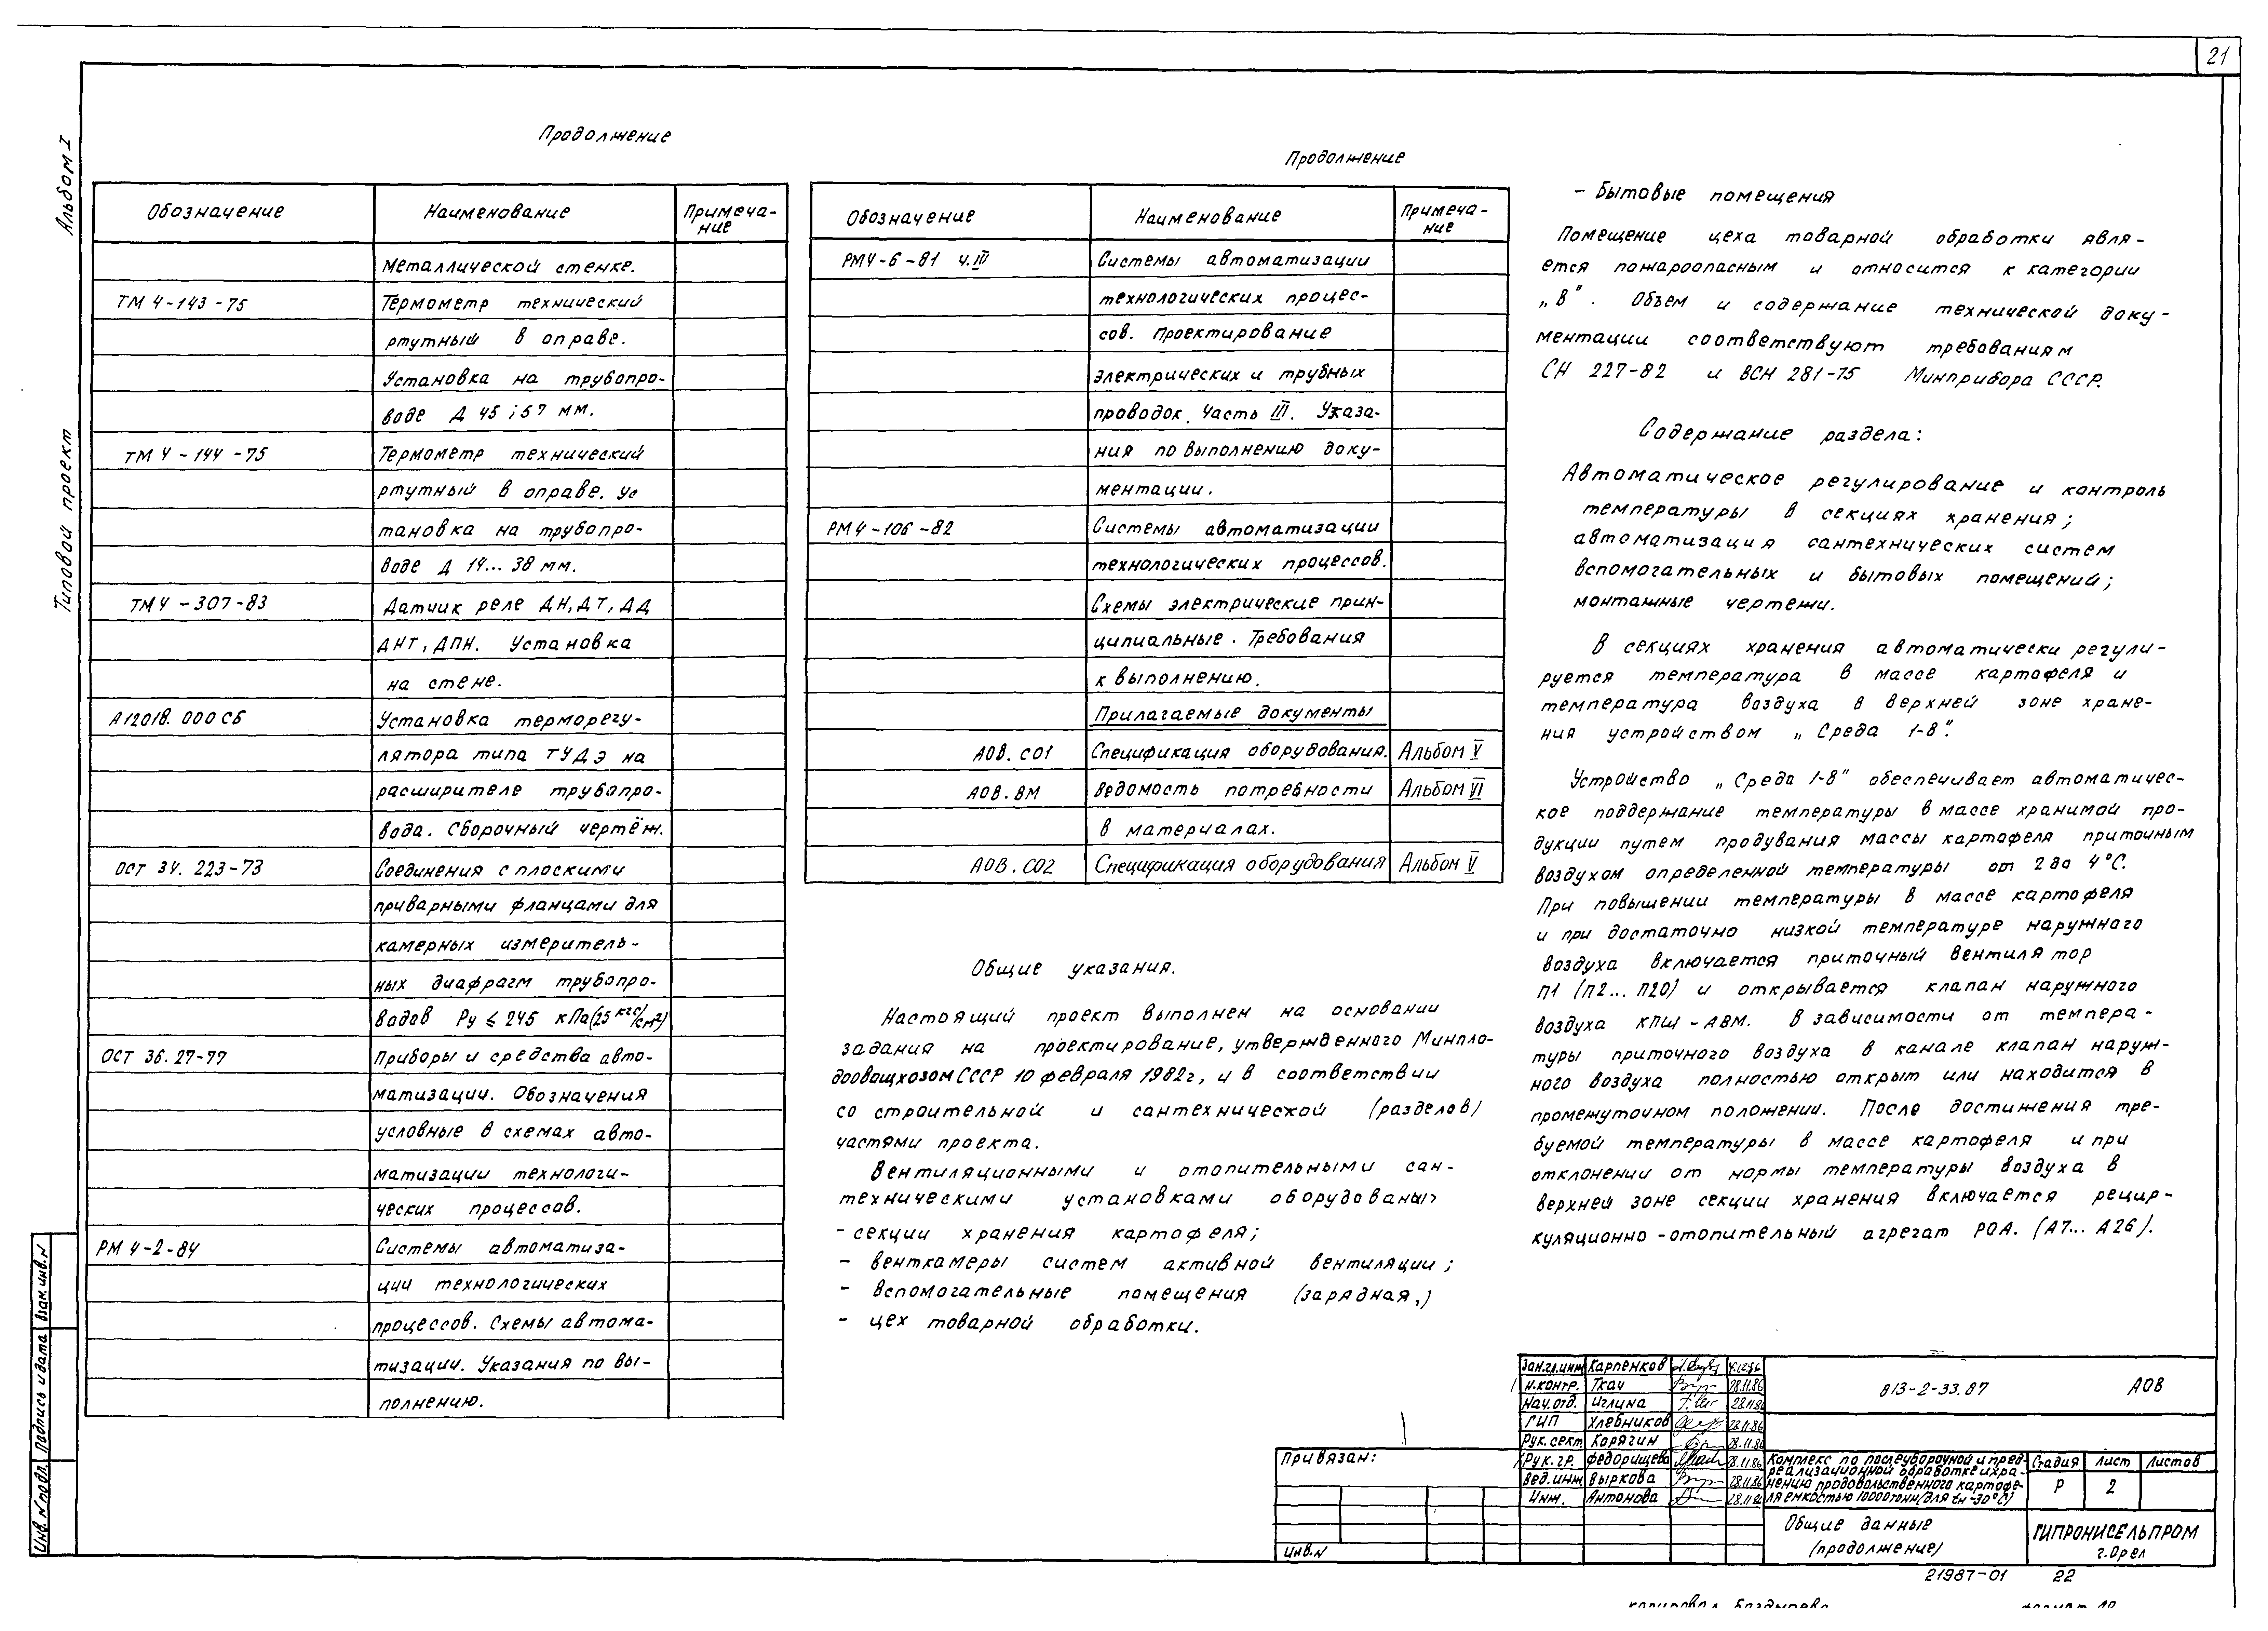 21
Альбом I
Типовой проект
Продолжение
Обозначение Наименование Примеча-
ние
металлической стенке.
ТМ 4-143-75 Термометр технический
ртутный в оправе.
Установка на трубопро-
воде Д 45; 57 мм.
ТМ 4-144-75 Термометр технический
ртутный в оправе. Ус
тановка на трубопро-
воде Д 14... 38 мм.
ТМ 4-307-83 Датчик реле ДН, ДТ, ДД
ДНТ, ДПН. Установка
на стене.
А12018.000 СБ Установка терморегу-
лятора типа ТУДЭ на
расширителе трубопро-
вода. Сборочный чертёж.
ОСТ 34.223-73 Соединения с плоскими
приварными фланцами для
камерных измеритель-
ных диафрагм трубопро-
водов Ру ≤ 245 кПа (25 кгс/см²)
ОСТ 36.27-77 Приборы и средства авто-
матизации. Обозначения
условные в схемах авто-
матизации технологи-
ческих процессов.
РМ 4-2-84 Системы автоматиза-
ции технологических
процессов. Схемы автома-
тизации. Указания по вы-
полнению.
Продолжение
Обозначение Наименование Примеча-
ние
РМ4-6-81 ч.III Системы автоматизации
технологических процес-
сов. Проектирование
электрических и трубных
проводок. Часть III. Указа-
ния по выполнению доку-
ментации.
РМ4-106-82 Системы автоматизации
технологических процессов.
Схемы электрические прин-
ципиальные. Требования
к выполнению.
Прилагаемые документы
АОВ.СО1 Спецификация оборудования. Альбом V
АОВ.ВМ Ведомость потребности Альбом VI
в материалах.
АОВ.СО2 Спецификация оборудования Альбом V
Общие указания.
Настоящий проект выполнен на основании
задания на проектирование, утвержденного Минпло-
доовощхозом СССР 10 февраля 1982г, и в соответствии
со строительной и сантехнической (разделов)
частями проекта.
Вентиляционными и отопительными сан-
техническими установками оборудованы:
- секции хранения картофеля;
- венткамеры систем активной вентиляции;
- вспомогательные помещения (зарядная,)
- цех товарной обработки.
- Бытовые помещения
Помещение цеха товарной обработки явля-
ется пожароопасным и относится к категории
„В". Объем и содержание технической доку-
ментации соответствуют требованиям
СН 227-82 и ВСН 281-75 Минприбора СССР.
Содержание раздела:
Автоматическое регулирование и контроль
температуры в секциях хранения;
автоматизация сантехнических систем
вспомогательных и бытовых помещений;
монтажные чертежи.
В секциях хранения автоматически регули-
руется температура в массе картофеля и
температура воздуха в верхней зоне хране-
ния устройством „Среда 1-8".
Устройство „Среда 1-8" обеспечивает автоматичес-
кое поддержание температуры в массе хранимой про-
дукции путем продувания массы картофеля приточным
воздухом определенной температуры от 2 до 4°С.
При повышении температуры в массе картофеля
и при достаточно низкой температуре наружного
воздуха включается приточный вентилятор
П1 (П2... П20) и открывается клапан наружного
воздуха КПШ-АВМ. В зависимости от темпера-
туры приточного воздуха в канале клапан наруж-
ного воздуха полностью открыт или находится в
промежуточном положении. После достижения тре-
буемой температуры в массе картофеля и при
отклонении от нормы температуры воздуха в
верхней зоне секции хранения включается рецир-
куляционно-отопительный агрегат РОА. (А7... А26).
Взам.инв.N
Подпись и дата
Инв.N подл.
Зам.гл.инж Карпенков
Н.контр. Ткач 28.11.86
Нач.отд. Иглина 28.11.86
ГИП Хлебников 28.11.86
Рук.сект. Корягин 28.11.86
Рук.гр. Федорищева 28.11.86
Вед.инж Выркова 28.11.86
Инж. Антонова 28.11.86
Привязан:
Инв.N
813-2-33.87 АОВ
Комплекс по послеуборочной и пред-
реализационной обработке и хра-
нению продовольственного картофе-
ля емкостью 10000 тонн (для tн-30°С)
Стадия Лист Листов
Р 2
Общие данные
(продолжение)
ГИПРОНИСЕЛЬПРОМ
г.Орел
21987-01 22